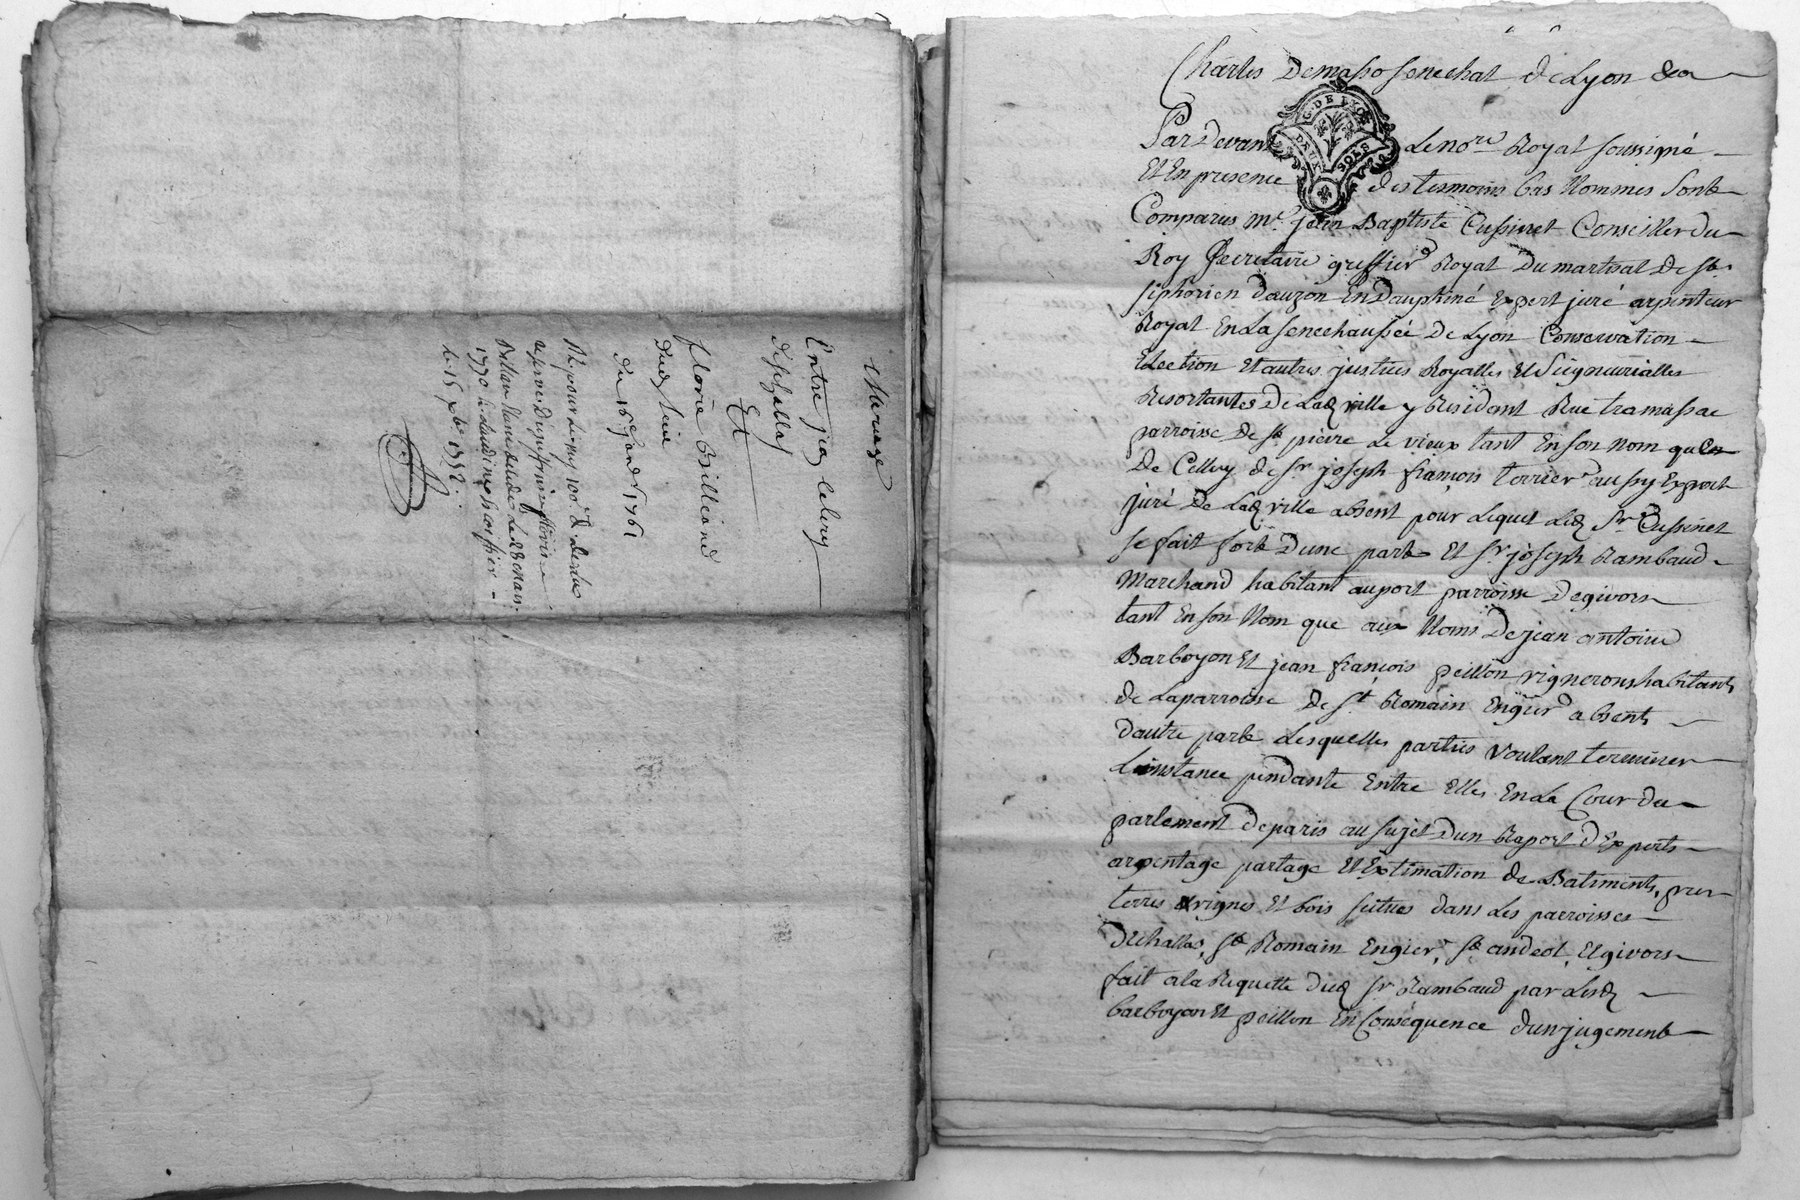 Mariage
Entre jean
dechalla
Et
florie Brilliand
dud lieu
du 16e janvr 1761
1770
le 15 xbre 1772.
Charles Demasso senechal de Lyon &a
G. DE LYON
DEUX SOLS
Pardevant Le nore Royal soussigné
Et En presence des tesmoins bas Nommes sont
Comparus Me jean Baptiste Cussinet Conseiller du
Roy Secretaire greffier Royal Du martsat de st
siphorien dauzon En Dauphiné Expert juré arpenteur
Royal En La senechaussée de Lyon Conservation
Election Et autres justices Royalles Et Seigneurialles
Resortantes de Lad ville y Residant Rue tramassac
parroisse de st pierre Le vieux tant En son nom quEn
De Celluy de sr joseph françois terrier aussy Expert
juré de Lad ville absent pour Lequel Led Sr Cussinet
se fait fort Dune part Et sr joseph Rambaud
Marchand habitant au port parroisse De givors
tant En son Nom que aux Noms De jean antoine
Barboyon Et jean françois peillon vignerons habitants
de La parroisse De st Romain Engier absents
Dautre part Lesquelles parties voulant terminer
Linstance pendante Entre Elles En La Cour du
parlement de paris au sujet Dun Raport dExperts
arpentage partage Et Extimation de Batiments, prez
terres vignes Et bois scitues dans Les parroisses
Dechallas, st Romain Engier, st andeol, Et givors
fait a La Requette dud sr Rambaud par Lesd
barboyon Et peillon En Consequence dun jugement